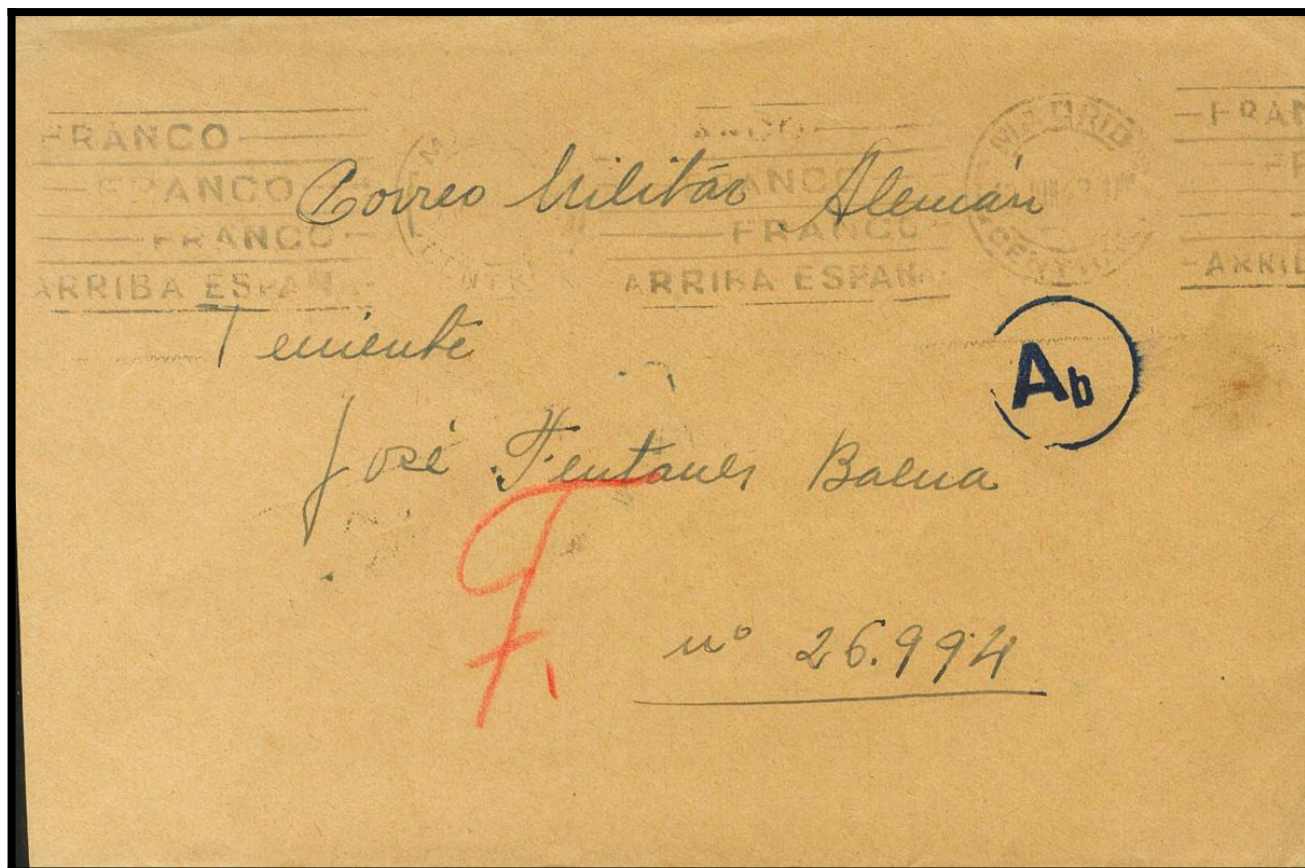 FRANCO
FRANCO
FRANCO
ARRIBA ESPAÑA
FRANCO
FRANCO
ARRIBA ESPAÑA
MADRID
Correo Militar Alemán
Teniente
Ab
José Fentanes Baena
F.
nº 26.994